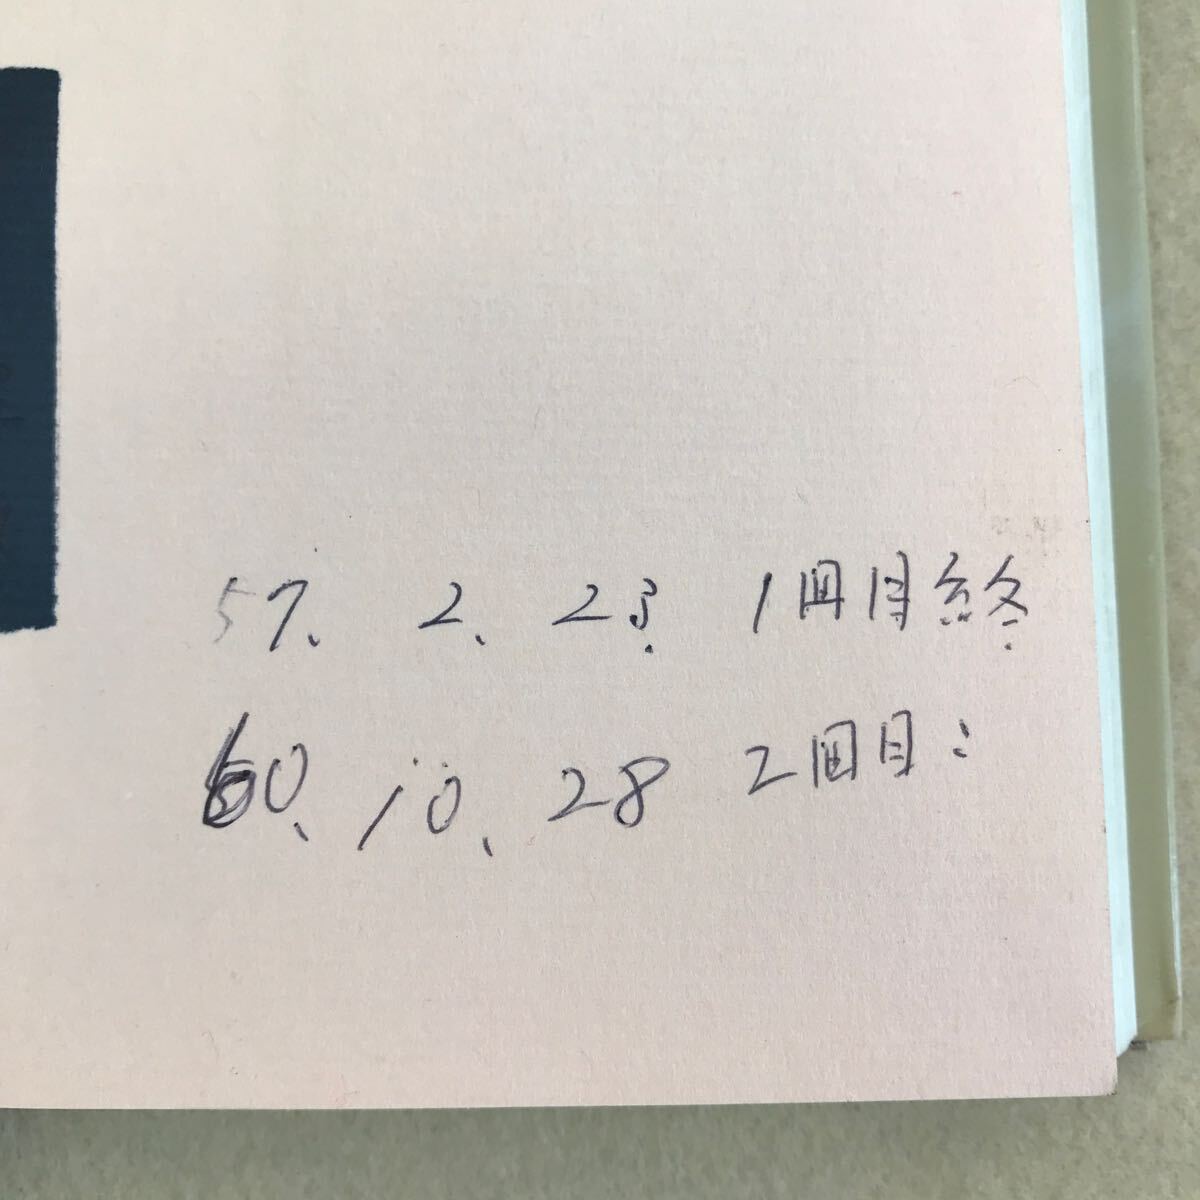 57. 2. 23. 1回目終
60. 10. 28 2回目〃